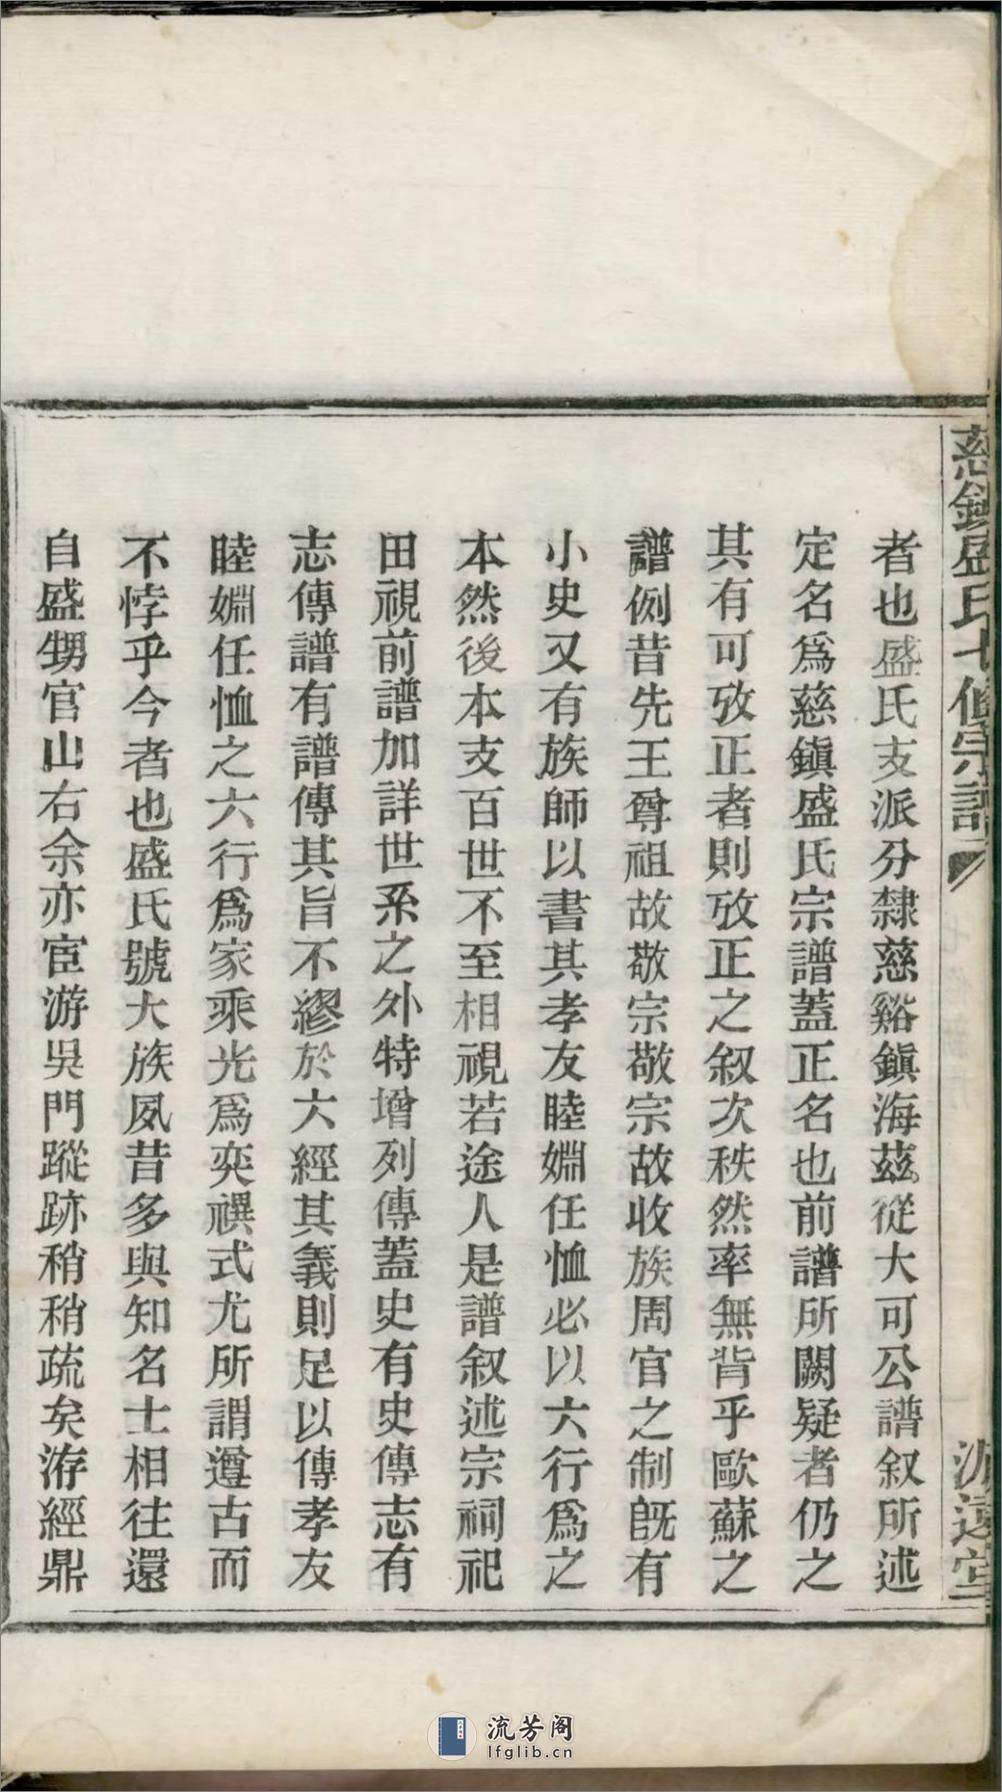 慈鎮盛氏七修宗譜
者也盛氏支派分隸慈谿鎮海茲從大可公譜叙所述
定名爲慈鎮盛氏宗譜蓋正名也前譜所闕疑者仍之
其有可攷正者則攷正之叙次秩然率無背乎歐蘇之
譜例昔先王尊祖故敬宗敬宗故收族周官之制旣有
小史又有族師以書其孝友睦婣任恤必以六行爲之
本然後本支百世不至相視若途人是譜叙述宗祠祀
田視前譜加詳世系之外特增列傳蓋史有史傳志有
志傳譜有譜傳其旨不繆於六經其義則足以傳孝友
睦婣任恤之六行爲家乘光爲奕禩式尤所謂遵古而
不悖乎今者也盛氏號大族夙昔多與知名士相往還
自盛甥官山右余亦宦游吳門蹤跡稍稍疏矣洊經鼎
遠堂
流芳阁
lfglib.cn